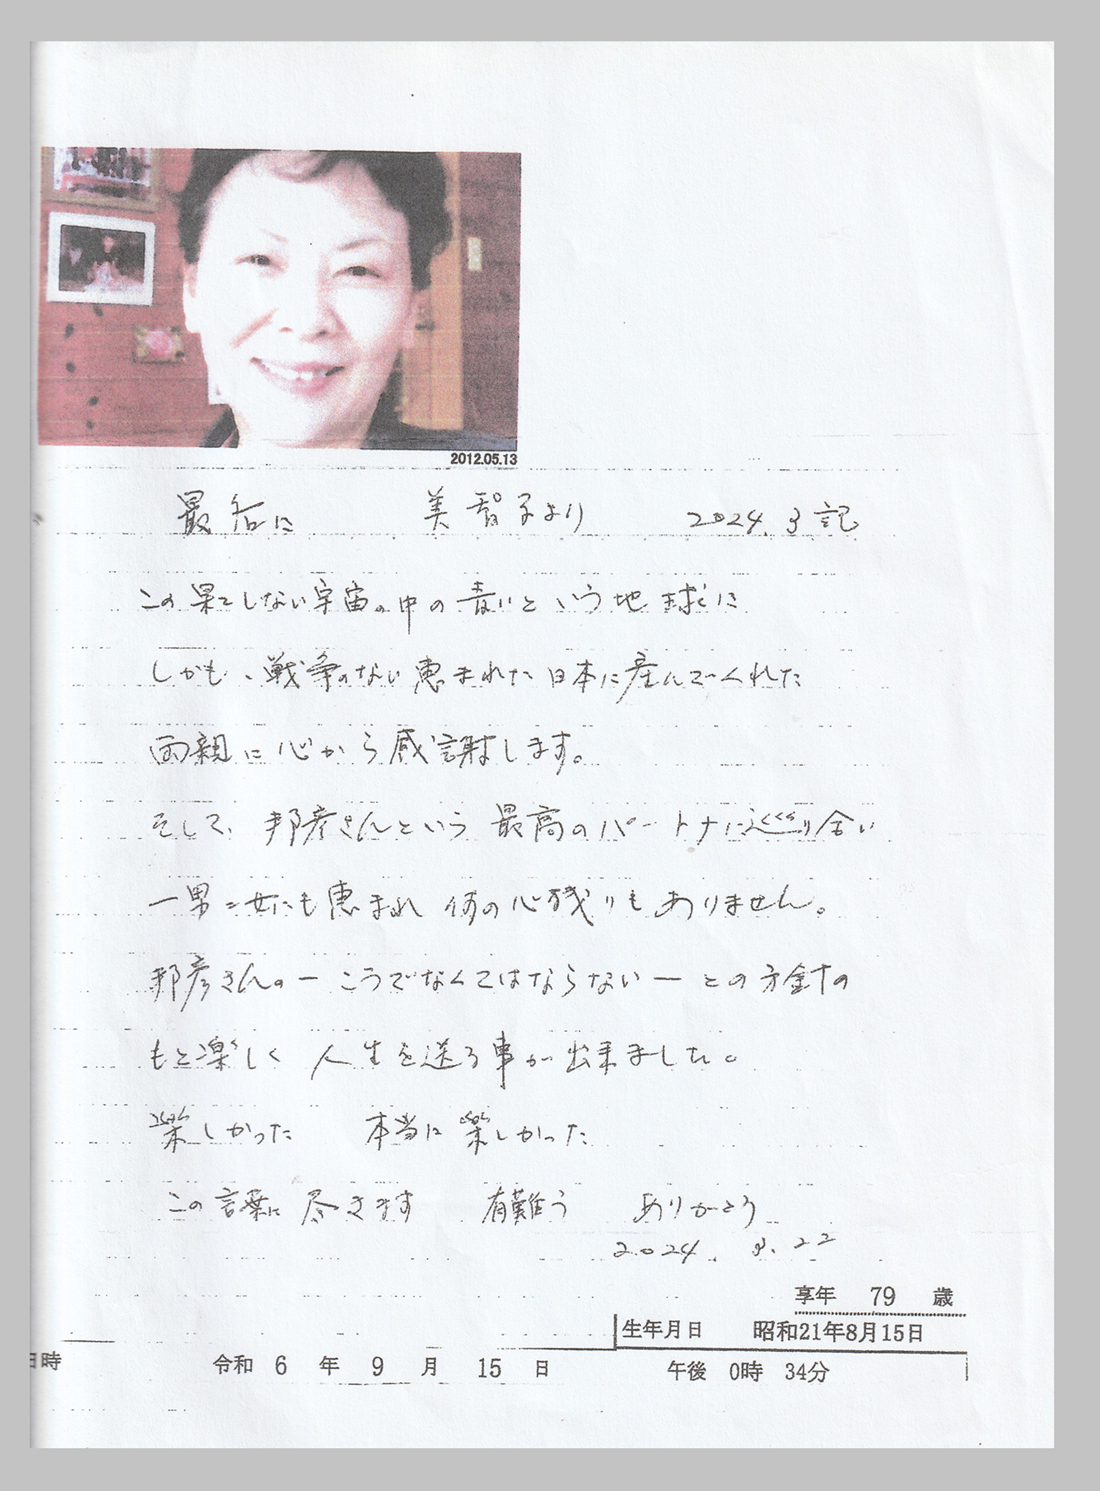 2012.05.13
最后に 美智子より 2024.3記
この果てしない宇宙の中の青いという地球に
しかも、戦争のない恵まれた日本に産んでくれた
両親に心から感謝します。
そして、邦彦さんという最高のパートナに巡り合い
一男二女にも恵まれ 何の心残りもありません。
邦彦さんの ー こうでなくてはならない ー との方針の
もと楽しく 人生を送る事が出来ました。
楽しかった 本当に楽しかった
この言葉に尽きます 有難う ありがとう
2024. 3. 22
享年 79 歳
生年月日 昭和21年8月15日
日時 令和 6 年 9 月 15 日 午後 0時 34分